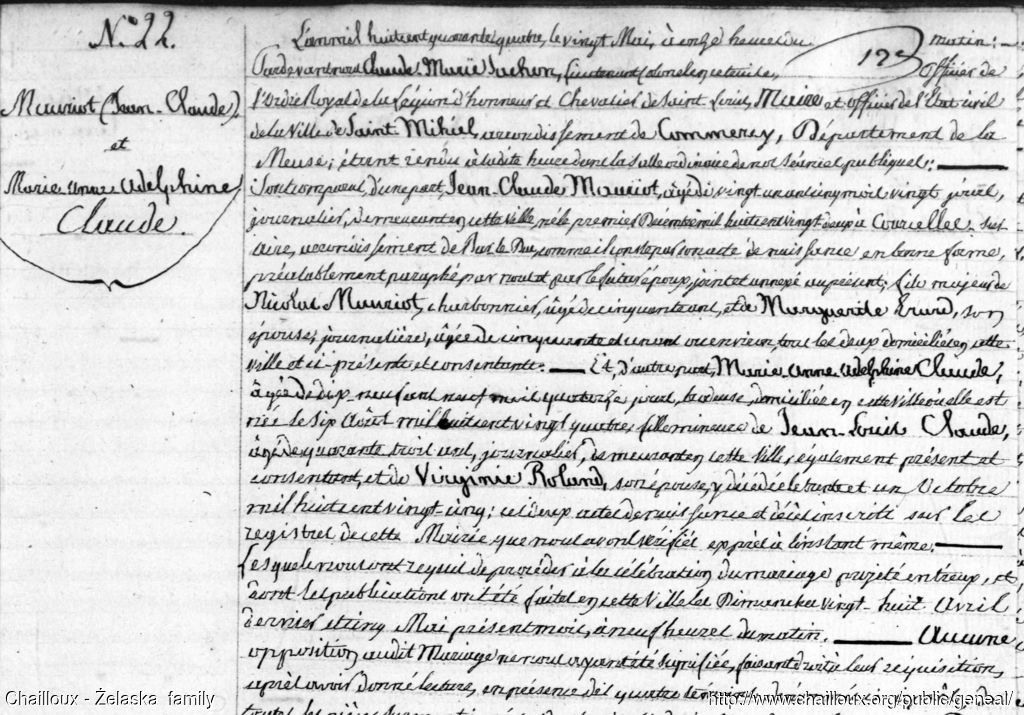 N.° 22.
Mauriot (Jean-Claude)
et
Marie anne adelphine
Claude.
L'an mil huit cent quarante quatre, le vingt Mai, à onze heures du matin:
Pardevant nous Claude-Marie Suchon, Lieutenant Colonel en retraite, Officier de
l'ordre Royal de la Légion d'honneur et Chevalier de Saint Louis, Maire et officier de l'état civil
de la Ville de Saint Mihiel, arrondissement de Commercy, Département de la
Meuse; étant rendu à ladite heure dans la Salle ordinaire de nos Séances publiques:
Sont comparus, d'une part, Jean-Claude Mauriot, âgé de vingt un ans cinq mois vingt jours,
journalier, demeurant en cette ville, né le premier Décembre mil huit cent vingt deux à Courcelles-sur
aire, arrondissement de Bar le Duc, comme il conste par son acte de naissance en bonne forme,
préalablement paraphé par nous et par le futur époux, joint et annexé au présent, fils majeur de
Nicolas Mauriot, charbonnier, âgé de cinquante ans, et de Marguerite Erard, son
épouse, journalière, âgée de cinquante et un ans ou environ, tous les deux domiciliés en cette
ville et ci-présents et consentants: Et, d'autre part, Marie anne adelphine Claude,
âgée de dix neuf ans neuf mois quatorze jours, brodeuse, domiciliée en cette Ville où elle est
née le six août mil huit cent vingt quatre, fille mineure de Jean-Louis Claude,
âgé de quarante trois ans, journalier, demeurant en cette Ville, également présent et
consentant, et de Virginie Roland, son épouse, y décédée le trente et un Octobre
mil huit cent vingt cinq; ces deux actes de naissance et décès inscrits sur les
registres de cette Mairie, que nous avons vérifiés exprès à l'instant même.
Lesquels nous ont requis de procéder à la célébration du mariage projeté entr'eux, et
dont les publications ont été faites en cette Ville les Dimanches vingt-huit avril
dernier et cinq Mai présent mois, à neuf heures du matin. Aucune
opposition audit Mariage ne nous ayant été signifiée, faisant droit à leur réquisition,
après avoir donné lecture, en présence des quatre
toutes les pièces
Chailloux - Želaska family
http://www.chailloux.org/public/geneal/